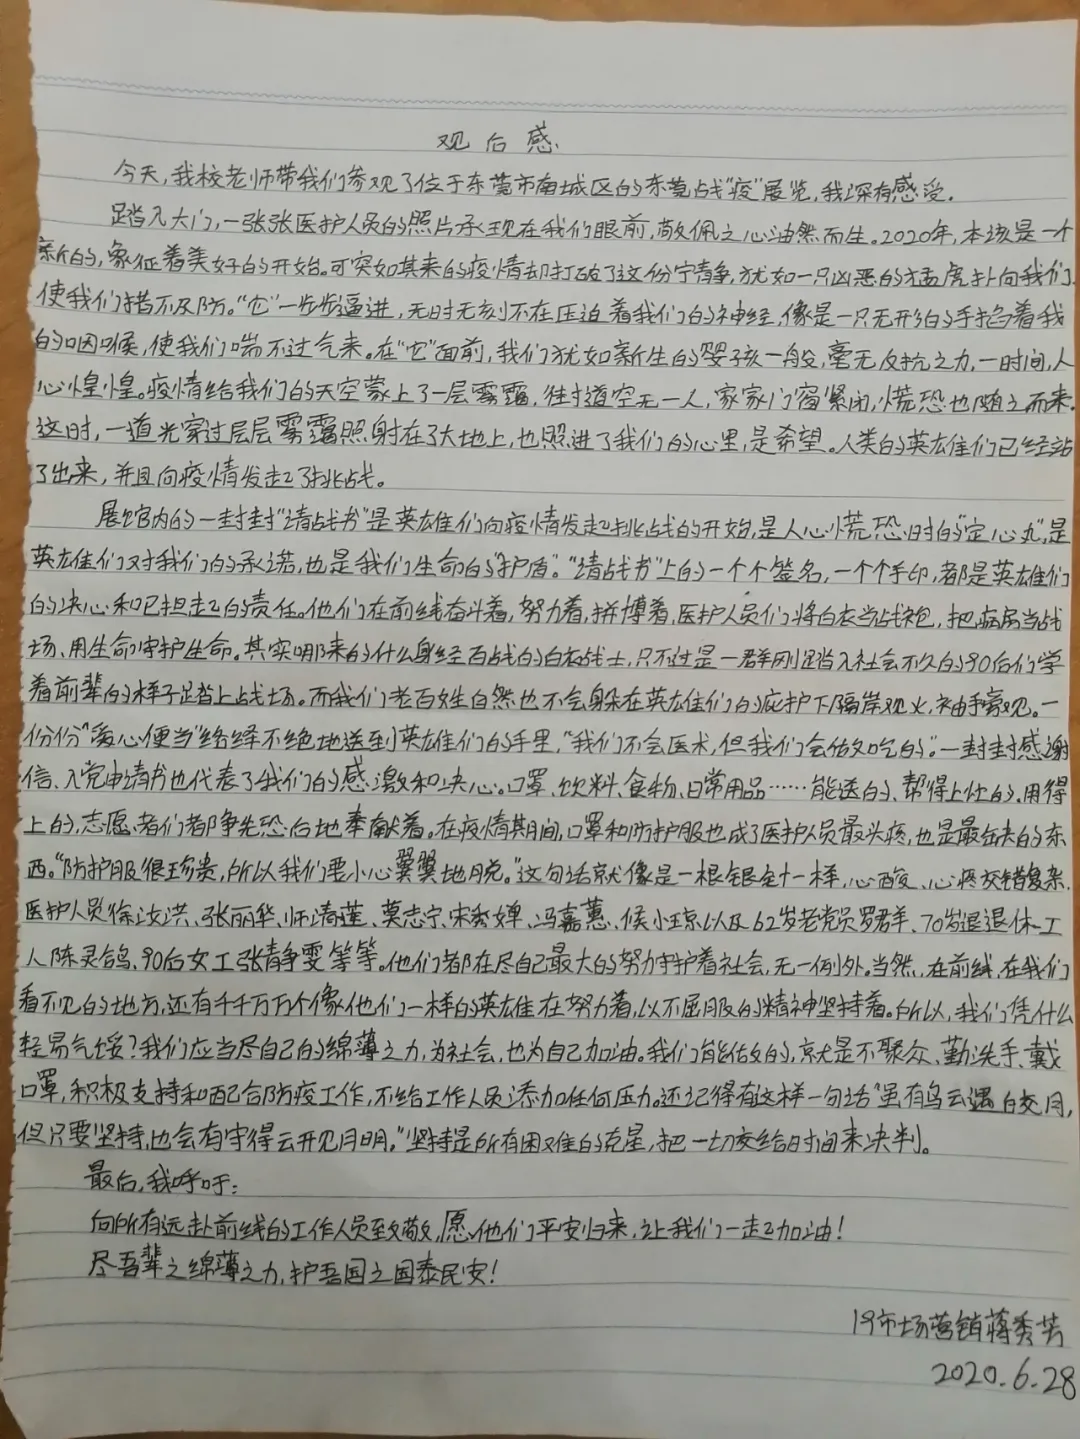 观后感
今天,我校老师带我们参观了位于东莞市南城区的东莞战"疫"展览,我深有感受。
踏入大门,一张张医护人员的照片承现在我们眼前,敬佩之心油然而生。2020年,本该是一个
新的,象征着美好的开始。可突如其来的疫情却打破了这份宁静,犹如一只凶恶的猛虎扑向我们,
使我们措不及防。"它"一步步逼进,无时无刻不在压迫着我们的神经,像是一只无形的手掐着我
的咽喉,使我们喘不过气来。在"它"面前,我们犹如新生的婴孩一般,毫无反抗之力,一时间,人
心惶惶。疫情给我们的天空蒙上了一层雾霾,街道空无一人,家家门窗紧闭,慌恐也随之而来。
这时,一道光穿过层层雾霾照射在了大地上,也照进了我们的心里,是希望。人类的英雄们已经站
了出来,并且向疫情发起了挑战。
展馆内的一封封"请战书"是英雄们向疫情发起挑战的开始,是人心慌恐时的"定心丸",是
英雄们对我们的承诺,也是我们生命的"护盾"。"请战书"上的一个个签名,一个个手印,都是英雄们
的决心和已担起的责任。他们在前线奋斗着,努力着,拼博着,医护人员们将白衣当战袍,把病房当战
场、用生命守护生命。其实哪来的什么身经百战的白衣战士,只不过是一群刚踏入社会不久的90后们学
着前辈的样子踏上战场。而我们老百姓自然也不会躲在英雄们的庇护下隔岸观火,袖手旁观。一
份份"爱心便当"络绎不绝地送到英雄们的手里,"我们不会医术,但我们会做吃的"。一封封感谢
信、入党申请书也代表了我们的感激和决心。口罩、饮料、食物、日常用品……能送的、帮得上忙的、用得
上的,志愿者们都争先恐后地奉献着。在疫情期间,口罩和防护服也成了医护人员最头疼,也是最缺的东
西。"防护服很珍贵,所以我们要小心翼翼地脱。"这句话就像是一根银针一样,心酸、心疼交错复杂。
医护人员徐汝洪、张丽华、师清莲、莫志宁、宋秀婵、冯嘉蕙、候小琼以及62岁老党员罗群、70岁退退休工
人陈灵鸽、90后女工张静雯等等。他们都在尽自己最大的努力守护着社会,无一例外。当然,在前线,在我们
看不见的地方,还有千千万万个像他们一样的英雄在努力着,以不屈服的精神坚持着。所以,我们凭什么
轻易气馁?我们应当尽自己的绵薄之力,为社会,也为自己加油。我们能做的,就是不聚众、勤洗手、戴
口罩,积极支持和配合防疫工作,不给工作人员添加任何压力。还记得有这样一句话"虽有乌云遇白交月,
但只要坚持,也会有守得云开见月明。"坚持是所有困难的克星,把一切交给时间来决判。
最后,我呼吁:
向所有远赴前线的工作人员致敬,愿他们平安归来,让我们一起加油!
尽吾辈之绵薄之力,护吾国之国泰民安!
19市场营销蒋秀芳
2020.6.28